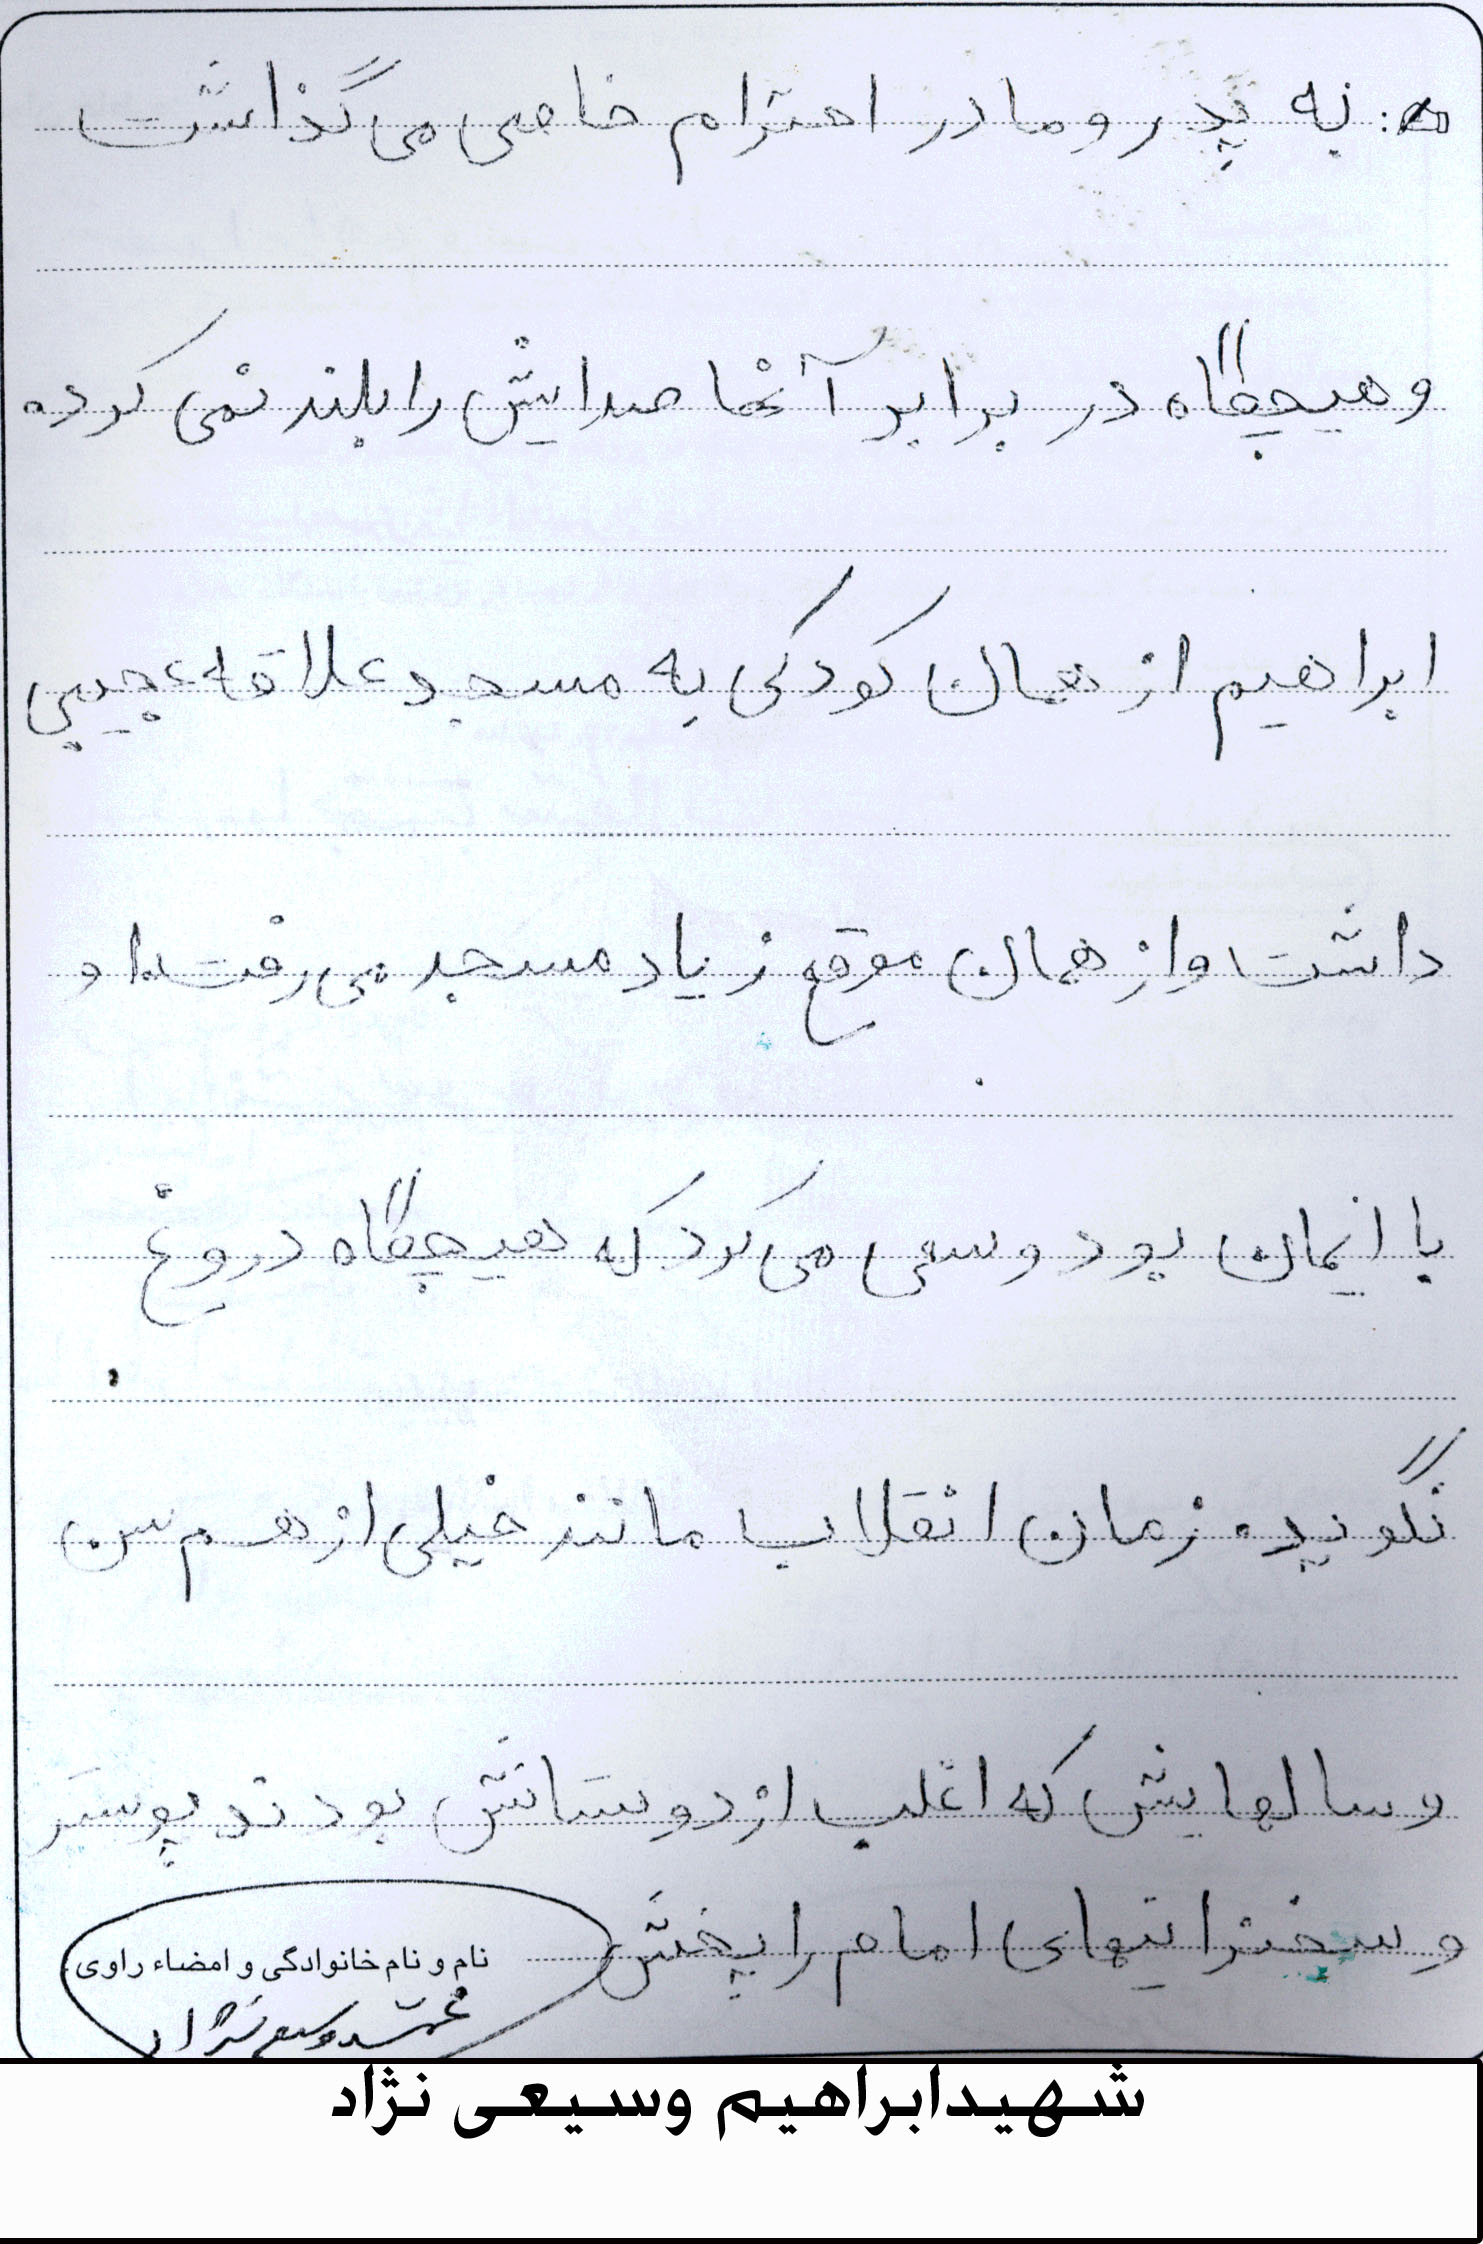 : به پدر و مادر احترام خاصی می گذاشت
و هیچگاه در برابر آنها صدایش را بلند نمی کرد.
ابراهیم از همان کودکی به مسجد علاقه عجیبی
داشت و از همان موقع زیاد مسجد می رفت. او
با ایمان بود و سعی می کرد که هیچگاه دروغ
نگوید. زمان انقلاب مانند خیلی از هم سن
و سالهایش که اغلب از دوستانش بودند پوستر
و سخنرانیهای امام را پخش
نام و نام خانوادگی و امضاء راوی:
وسیعی نژاد
شهیدابراهیم وسیعی نژاد